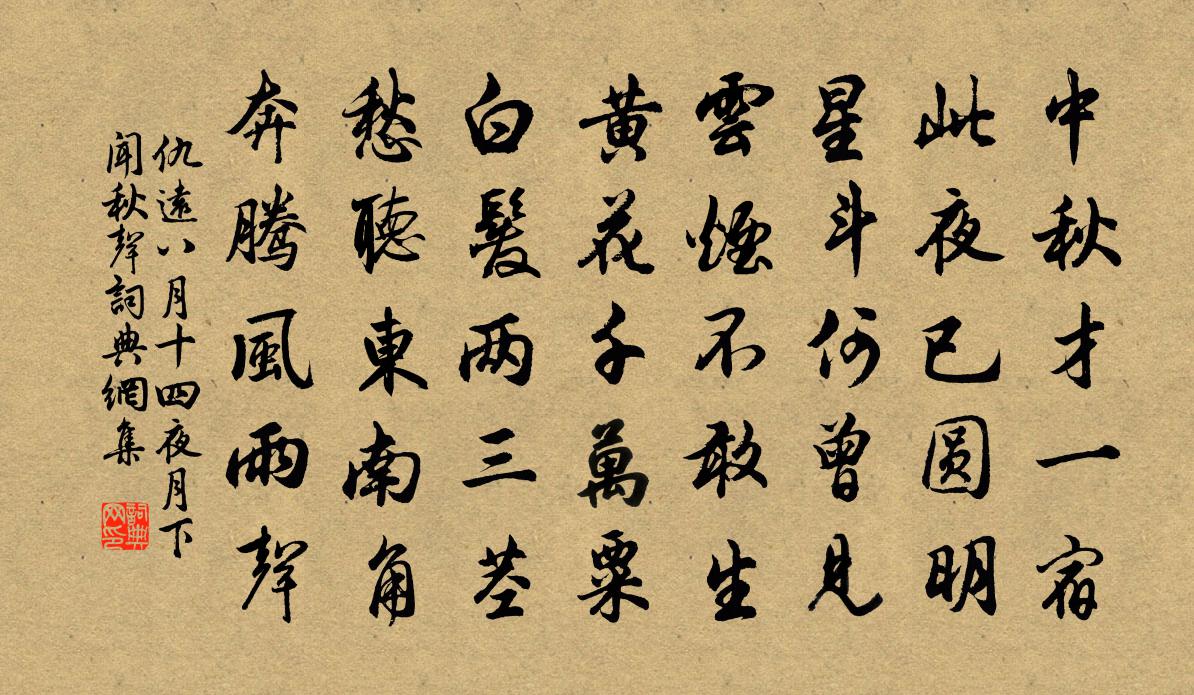 中秋才一宿
此夜已圆明
星斗何曾見
雲煙不敢生
黄花千萬粟
白髮两三茎
愁聽東南角
奔騰風雨聲
仇遠八月十四夜月下
聞秋聲詞典網集
詞典
网印